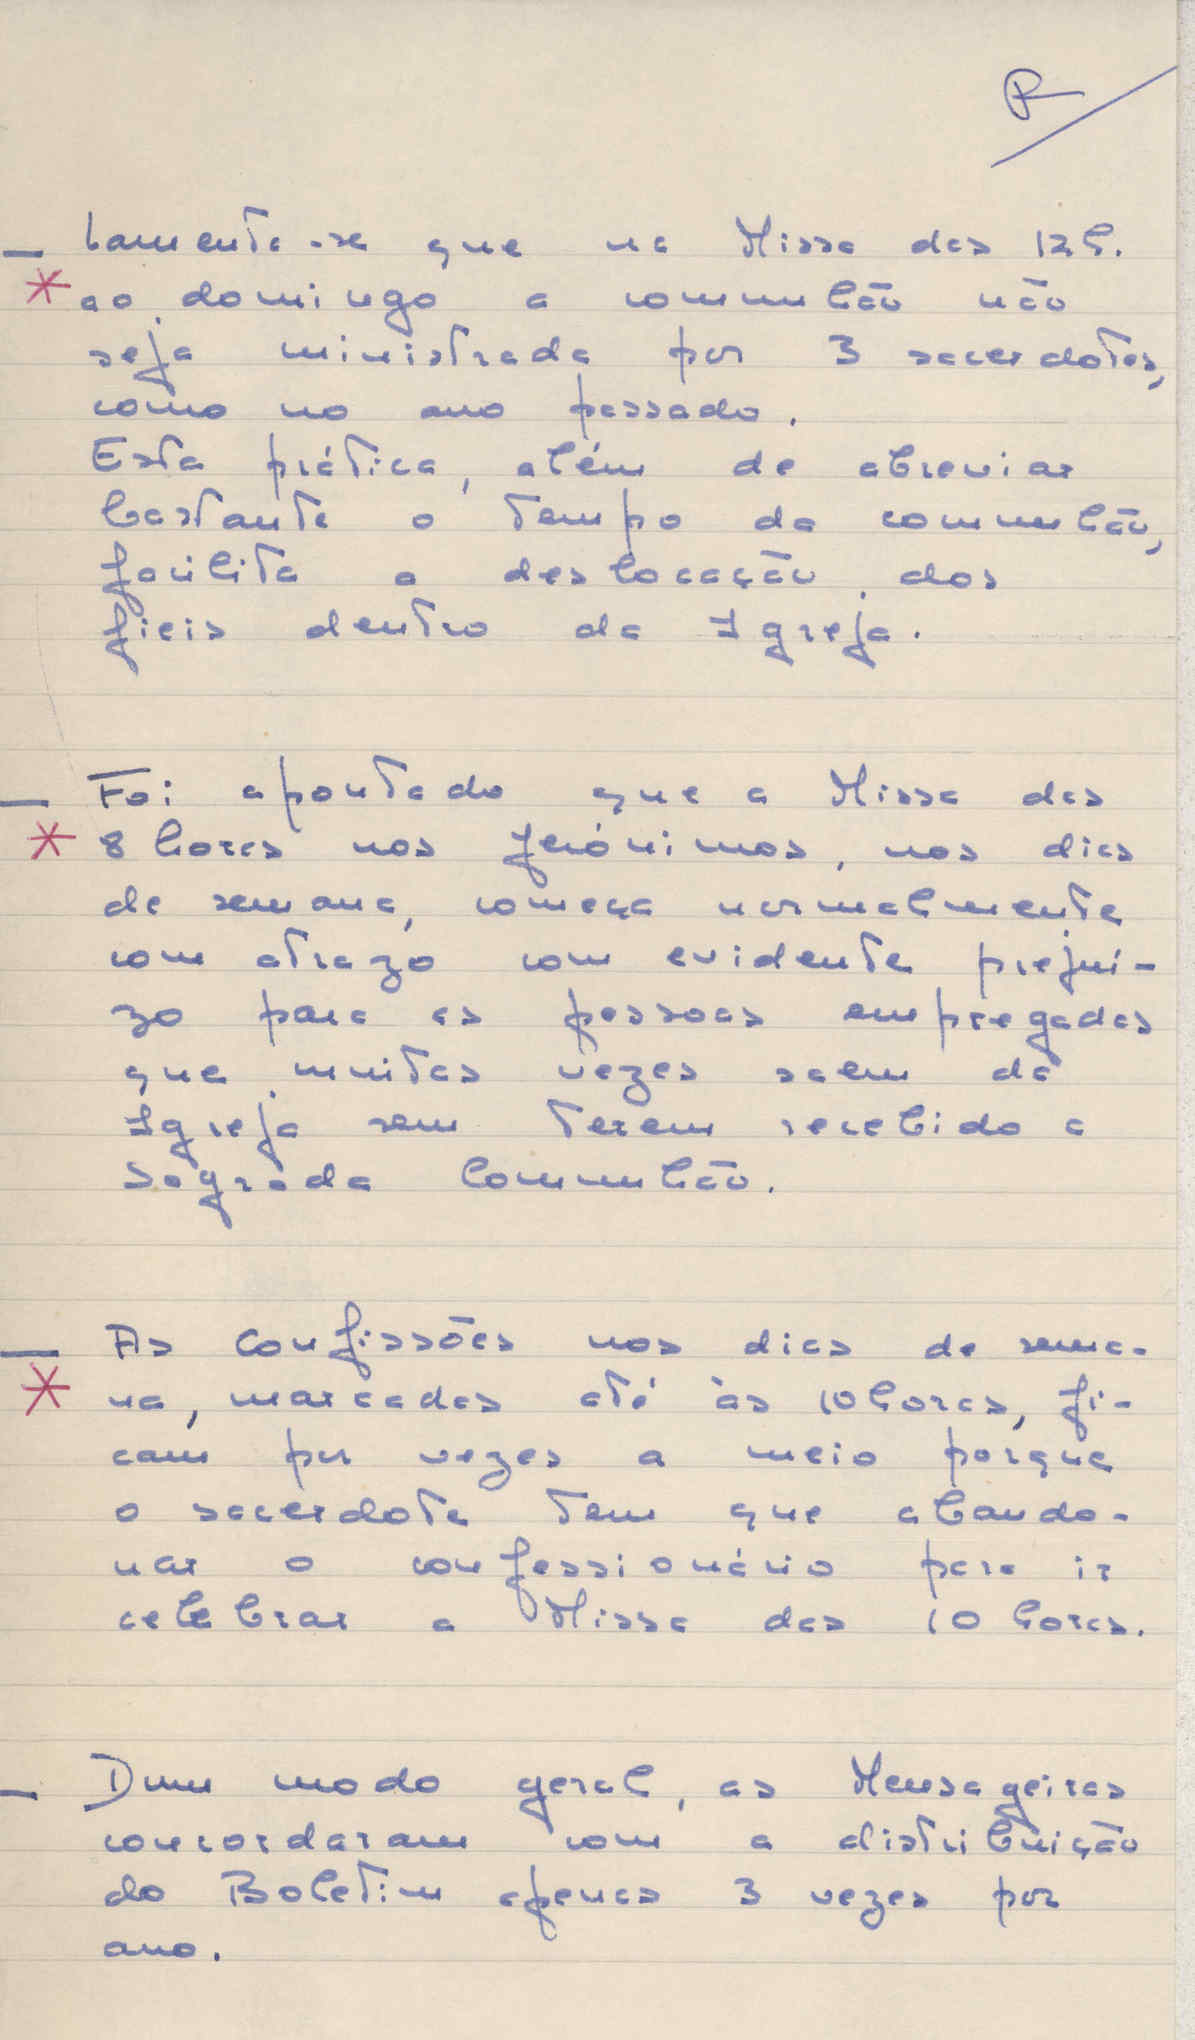 R
- Lamenta-se que na Missa das 12h.
* ao domingo a comunhão não
seja ministrada por 3 sacerdotes,
como no ano passado.
Esta prática, além de abreviar
bastante o tempo da comunhão,
facilita a deslocação dos
fieis dentro da Igreja.
- Foi apontado que a Missa das
* 8 horas nos Jerónimos, nos dias
de semana, começa normalmente
com atrazo com evidente prejui-
zo para as pessoas empregadas
que muitas vezes saem da
Igreja sem terem recebido a
Sagrada Comunhão.
- As confissões nos dias de sema-
* na, marcadas até às 10 horas, fi-
cam por vezes a meio porque
o sacerdote tem que abando-
nar o confessionário para ir
celebrar a Missa das 10 horas.
- Dum modo geral, as Mensageiras
concordaram com a distribuição
do Boletim apenas 3 vezes por
ano.